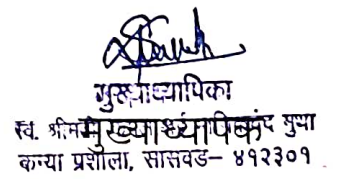 मुख्याध्यापिका
स्व. श्रीम मुख्याध्यापिका मुथा
कन्या प्रशाला, सासवड– ४१२३०१